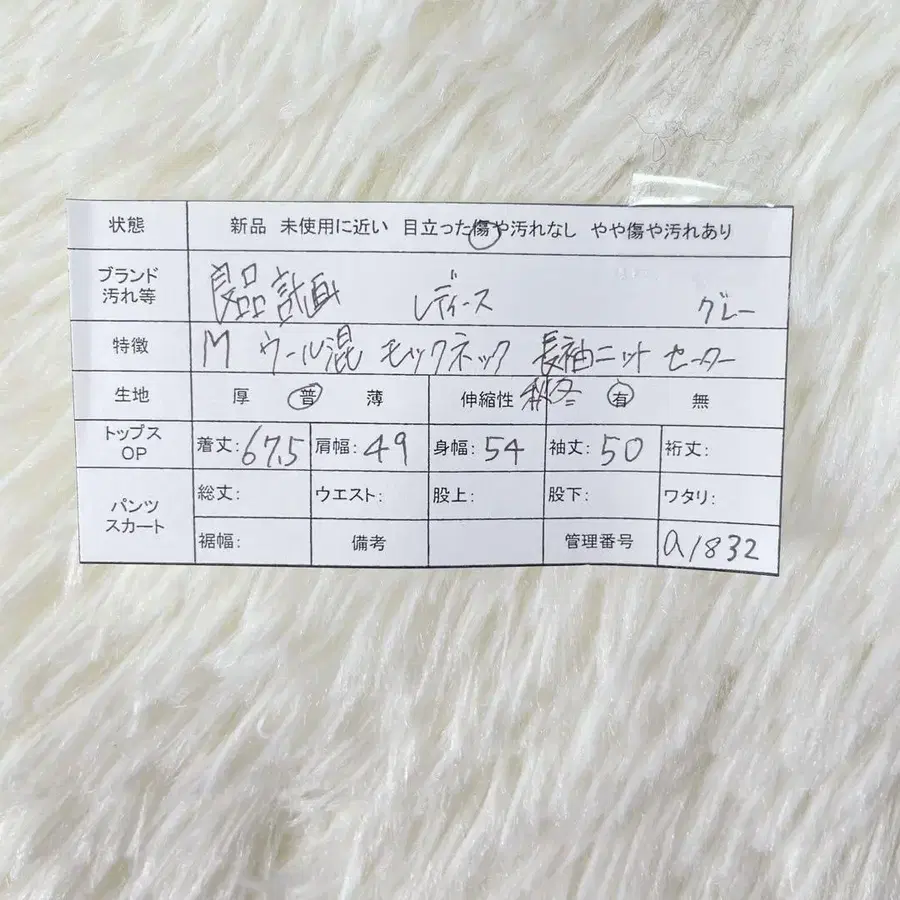 状態 新品 未使用に近い 目立った傷や汚れなし やや傷や汚れあり
ブランド 汚れ等 良品計画 レディース グレー
特徴 M ウール混 モックネック 長袖ニット セーター
生地 厚 普 薄 伸縮性 秋冬 有 無
トップス OP 着丈:67.5 肩幅:49 身幅:54 袖丈:50 裄丈:
パンツ スカート 総丈: ウエスト: 股上: 股下: ワタリ:
裾幅: 備考 管理番号 a1832